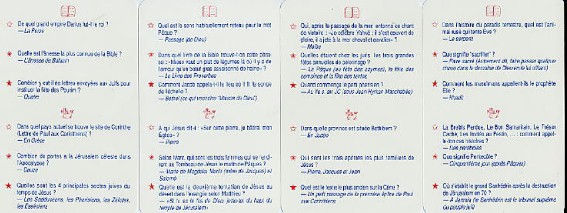 De quel grand empire Darius fut-il le roi ?
– La Perse
Quelle est l'ânesse la plus connue de la Bible ?
– L'ânesse de Balaam
Combien y eut-il de lettres envoyées aux Juifs pour
instituer la fête des Pourim ?
– Quatre
Dans quel pays actuel se trouve le site de Corinthe
(Lettre de Paul aux Corinthiens) ?
– En Grèce
Combien de portes a la Jérusalem céleste dans
l'Apocalypse ?
– Douze
Quelles sont les 4 principales sectes juives du
temps de Jésus ?
– Les Sadducéens, les Pharisiens, les Zélotes,
les Esséniens
Quel est le sens habituellement retenu pour le mot
Pâque ?
– Passage (de Dieu)
Dans quel livre de la Bible trouve-t-on cette parole
: « Mieux vaut un plat de légumes là où il y a de
l'amour qu'un bœuf gras assaisonné de haine » ?
– Le Livre des Proverbes
Comment Jacob appela-t-il le lieu où il fit le songe
de l'échelle ?
– Béthel (ce qui veut dire "Maison de Dieu")
A qui Jésus dit-il : « Sur cette pierre, je bâtirai mon
Eglise » ?
– Pierre
Selon Marc, qui sont les trois femmes qui se rendent
au Tombeau de Jésus le matin de Pâques ?
– Marie de Magdala, Marie (mère de Jacques) et
Salomé
Quelle est la deuxième tentation de Jésus au
désert dans l'évangile selon Matthieu ?
du temple de Jérusalem)
Qui, après le passage de la mer, entonne ce chant
de victoire : « Je célèbre Yahvé : il s'est couvert de
gloire, il a jeté à la mer cheval et cavalier » ?
– Moïse
Quelles étaient chez les juifs, les trois grandes
fêtes annuelles de pèlerinage ?
– La Pâque (ou fête des azymes), la fête des
semaines et la fête des tentes
Dans quelle province est située Bethléem ?
– En Judée
Qui sont les trois apôtres les plus familiers de
Jésus ?
– Pierre, Jacques et Jean
Quel est le texte le plus ancien sur la Cène ?
– Un petit passage de la première épître de Paul
aux Corinthiens
Dans l'histoire du paradis terrestre, quel est l'animal
qui tenta Eve ?
– Le serpent
Que signifie "sacrifier" ?
Comment les musulmans appellent-ils le prophète
Elie ?
La Brebis Perdue, Le Bon Samaritain, Le Trésor
– Des paraboles
Que signifie Pentecôte ?
– Cinquantième jour (après Pâques)
Où s'établit le grand Sanhédrin après la destruction
de Jérusalem en 70 ?